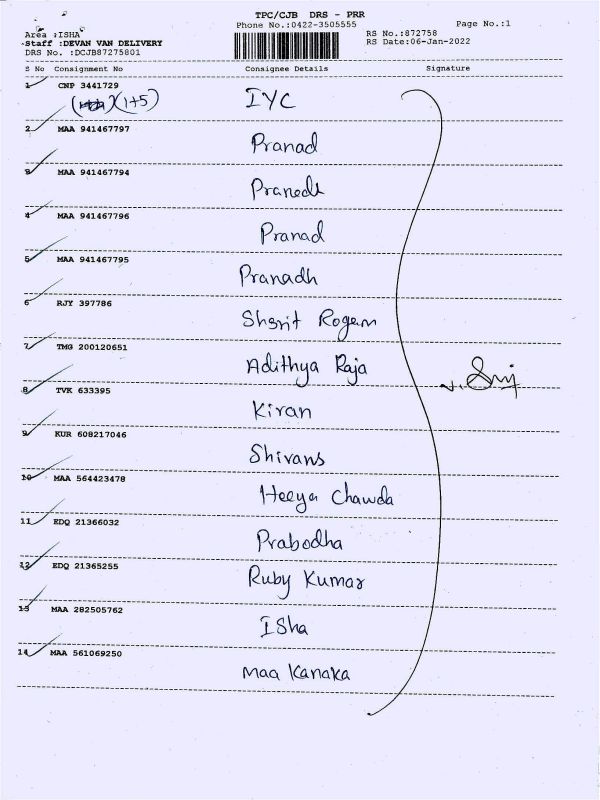 TPC/CJB DRS - PRR
Phone No.:0422-3505555
Page No.:1
Area :ISHA
Staff :DEVAN VAN DELIVERY
DRS No. :DCJB87275801
RS No.:872758
RS Date:06-Jan-2022
S No Consignment No Consignee Details Signature
1 CNP 3441729 IYC
(1+5)
2 MAA 941467797
Pranad
3 MAA 941467794
Pranedh
4 MAA 941467796
Pranad
5 MAA 941467795
Pranadh
6 RJY 397786
Rogem
7 TMG 200120651
Adithya Raja
8 TVK 633395
Kiran
9 KUR 608217046
Shivans
10 MAA 564423478
Heeya Chawda
11 EDQ 21366032
Prabodha
12 EDQ 21365255
Ruby Kumar
13 MAA 282505762
ISha
14 MAA 561069250
Maa Kanaka